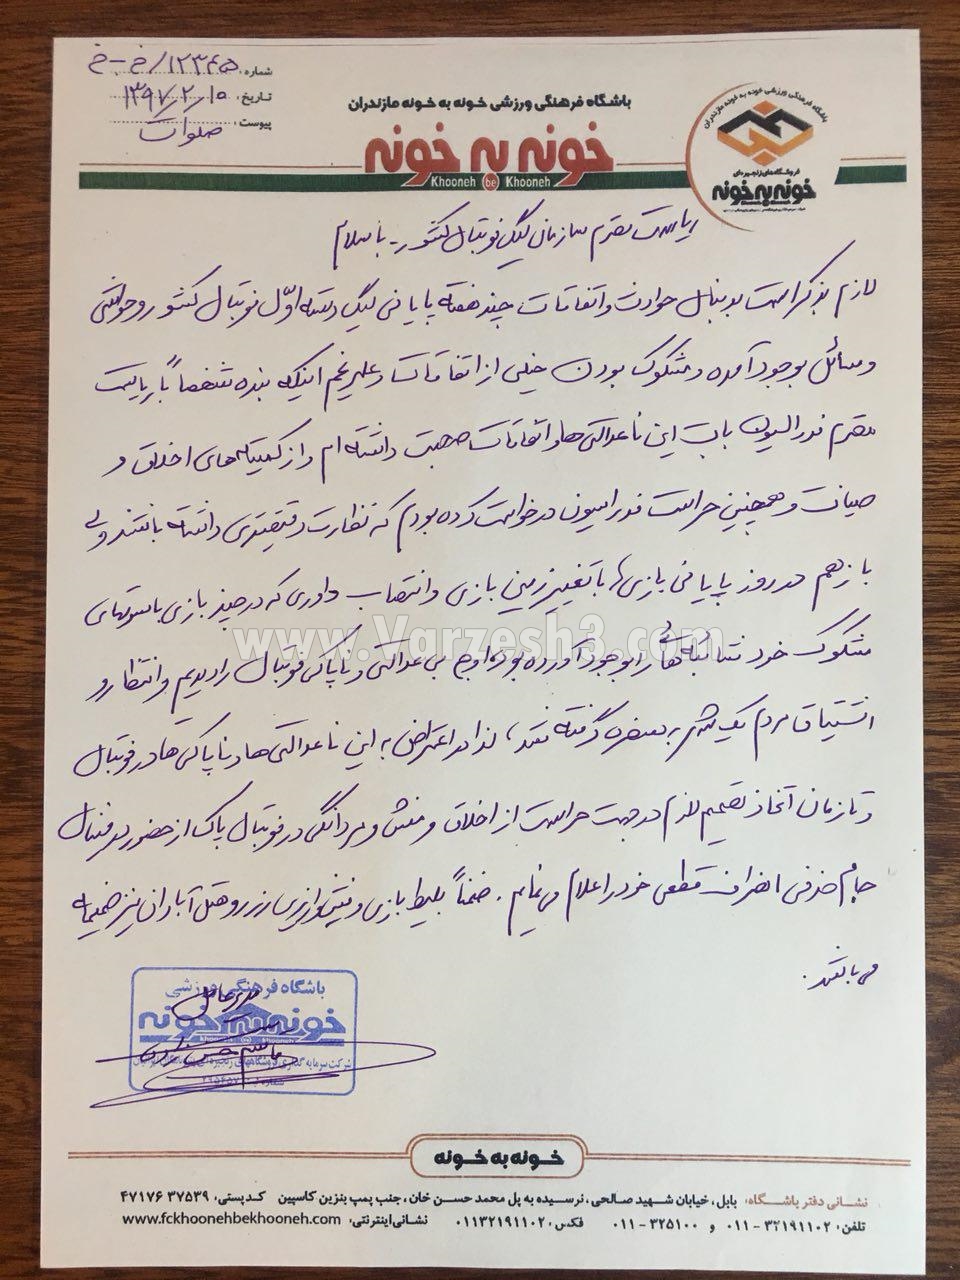 شماره: ۱۲۳۴۵/خ-خ
تاریخ: ۱۳۹۷/۲/۱۰
پیوست: صلوات
باشگاه فرهنگی ورزشی خونه به خونه مازندران
خونه به خونه
Khooneh be Khooneh
باشگاه فرهنگی ورزشی خونه به خونه مازندران
فروشگاه‌های زنجیره‌ای
خونه به خونه
ریاست محترم سازمان لیگ فوتبال کشور - با سلام
لازم بذکر است بدنبال حوادث و اتفاقات چند هفته پایانی لیگ دسته اول فوتبال کشور و حواشی
و مسائل بوجود آمده و مشکوک بودن خیلی از اتفاقات و علیرغم اینکه بنده شخصاً با ریاست
محترم فدراسیون بابت این ناعدالتی ها و اتفاقات صحبت داشته ام و از کمیته های اخلاق و
صیانت و همچنین حراست فدراسیون درخواست کرده بودم که نظارت دقیقتری داشته باشند ولی
باز هم در روز پایانی بازی ها با تغییر زمین بازی و انتصاب داوری که در چند بازی با سوتهای
مشکوک خود شائبه هائی را بوجود آورده بود اوج بی عدالتی و ناپاکی فوتبال را دیدیم و انتظار و
اشتیاق مردم یک شهر به سخره گرفته شد، لذا در اعتراض به این ناعدالتی ها و ناپاکی ها در فوتبال
و تا زمان اتخاذ تصمیم لازم در جهت حراست از اخلاق و منش و مردانگی در فوتبال پاک از حضور در فینال
جام حذفی انصراف قطعی خود را اعلام می نمایم. ضمناً بلیط بازی و فیش واریزی رزرو هتل آبادان نیز ضمیمه
می باشد.
www.Varzesh3.com
باشگاه فرهنگی ورزشی
مدیرعامل
خونه به خونه
شرکت سرمایه گذاری فروشگاههای زنجیره‌ای
خونه به خونه
نشانی دفتر باشگاه: بابل، خیابان شهید صالحی، نرسیده به پل محمد حسن خان، جنب پمپ بنزین کاسپین کدپستی: ۳۷۵۳۹ ۴۷۱۷۶
تلفن: ۳۲۱۹۱۱۰۲-۰۱۱ و ۳۲۵۱۰۰-۰۱۱ فکس: ۰۱۱۳۲۱۹۱۱۰۲ نشانی اینترنتی: www.fckhoonehbekhooneh.com